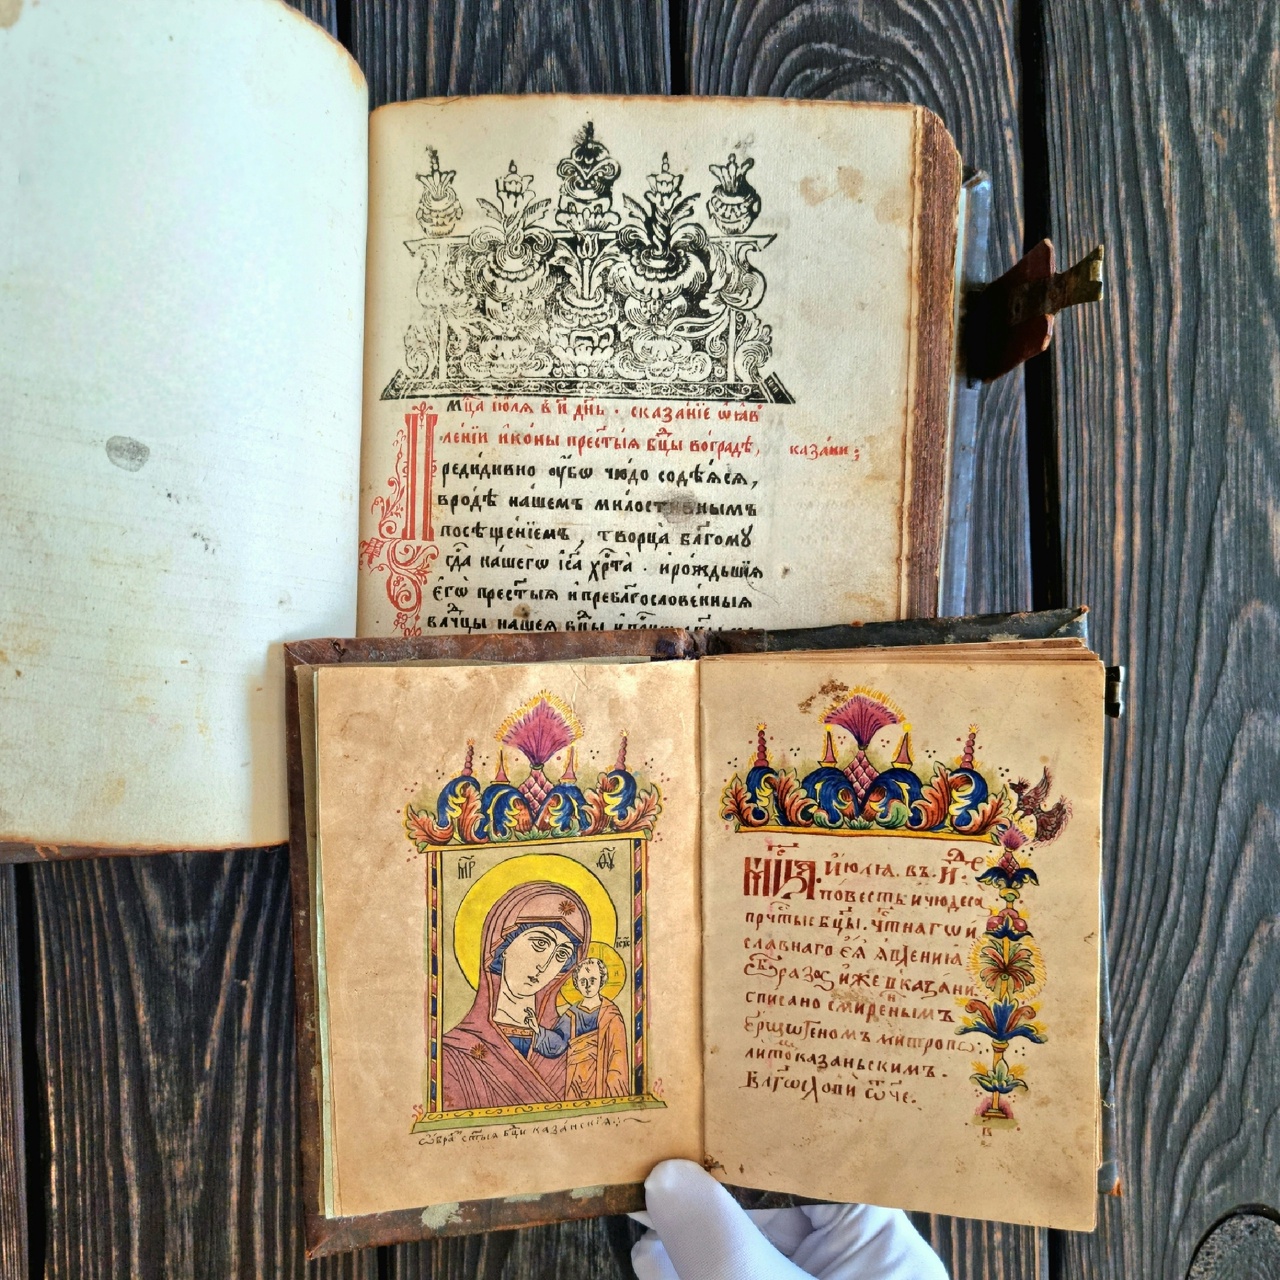 мцⷭ҇а іюлѧ в҃ и҃ дн҃ь · сказаніе ѡ҆ꙗв
ленїи и҆ко́ны прест҃ы́ѧ бцⷣы вогра́дѣ, каза́ни ;
Преди́дивно ᲂу҆́бѡ чю́до содѣ́ѧсѧ,
вро́дѣ на́шемъ ми́лостивнымъ
посѣще́нїемъ , творца̀ бл҃гомꙋ
гдⷭ҇а на́шегѡ і҆с҃а хрⷭ҇та̀ · и҆ро́ждьшїѧ
є҆гѡ̀ прест҃ы́ѧ и҆пребл҃гослове́нныѧ
влⷣчцы на́шеѧ бцⷣы
мр҃ ѳ҃ꙋ
і҆с҃ хс҃
ѡ҆́браⷥ ст҃ы́ѧ бцⷣы каза́нскїѧ
Мцⷭ҇а. и҆ю́лїѧ. въ. и҃. де
повесть и҆чюдеса̀
прчⷭ҇тыѧ бцⷣы. чⷭ҇тнагѡ и҆
сла́внаго є҆ѧ̀ ꙗ҆вле́нїѧ
ѡ҆́браза, и҆́же в̾каза́ни.
спи́сано смире́нымъ
є҆рмоге́номъ митропо
литоⷨ каза́ньскимъ.
Бл҃гословѝ ѿч҃е.
в҃